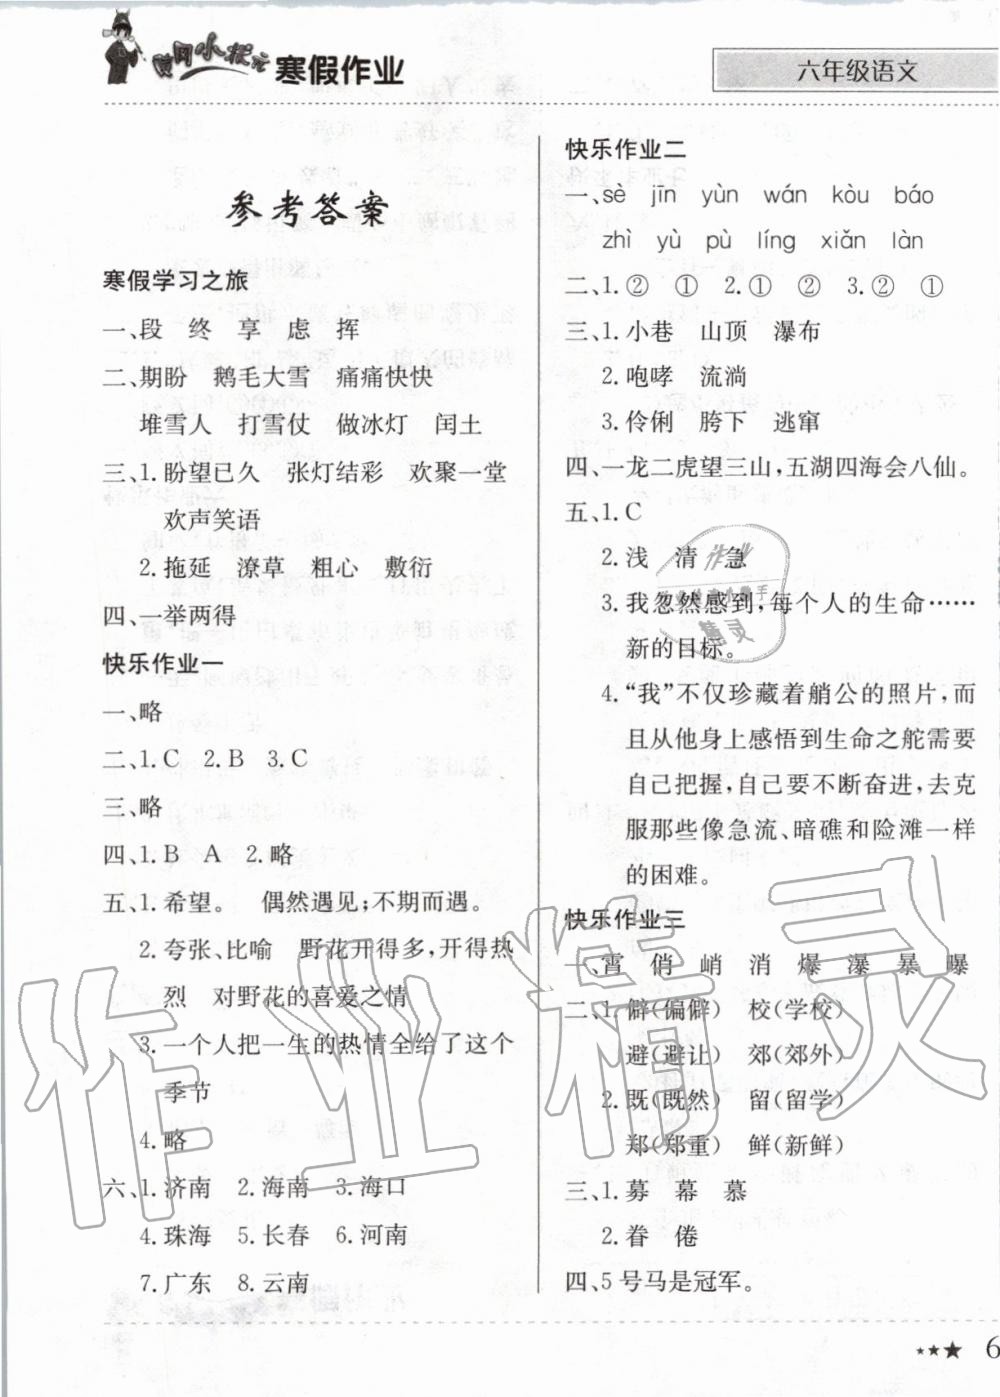 黄冈小状元寒假作业
六年级语文
参考答案
寒假学习之旅
一、段 终 享 虑 挥
二、期盼 鹅毛大雪 痛痛快快
堆雪人 打雪仗 做冰灯 闰土
三、1.盼望已久 张灯结彩 欢聚一堂
欢声笑语
2.拖延 潦草 粗心 敷衍
四、一举两得
快乐作业一
一、略
二、1.C 2.B 3.C
三、略
四、1.B A 2.略
五、1.希望。 偶然遇见;不期而遇。
2.夸张、比喻 野花开得多,开得热
烈 对野花的喜爱之情
3.一个人把一生的热情全给了这个
季节
4.略
六、1.济南 2.海南 3.海口
4.珠海 5.长春 6.河南
7.广东 8.云南
快乐作业二
一、sè jīn yùn wán kòu báo
zhì yù pù líng xiǎn làn
二、1.② ① 2.① ② 3.② ①
三、1.小巷 山顶 瀑布
2.咆哮 流淌
3.伶俐 胯下 逃窜
四、一龙二虎望三山,五湖四海会八仙。
五、1.C
2.浅 清 急
3.我忽然感到,每个人的生命……
新的目标。
4.“我”不仅珍藏着艄公的照片,而
且从他身上感悟到生命之舵需要
自己把握,自己要不断奋进,去克
服那些像急流、暗礁和险滩一样
的困难。
快乐作业三
一、宵 俏 峭 消 爆 瀑 暴 曝
二、1.僻(偏僻) 校(学校)
避(避让) 郊(郊外)
2.既(既然) 留(留学)
郑(郑重) 鲜(新鲜)
三、1.募 幕 慕
2.眷 倦
四、5 号马是冠军。
作业精灵
作业
精灵
6